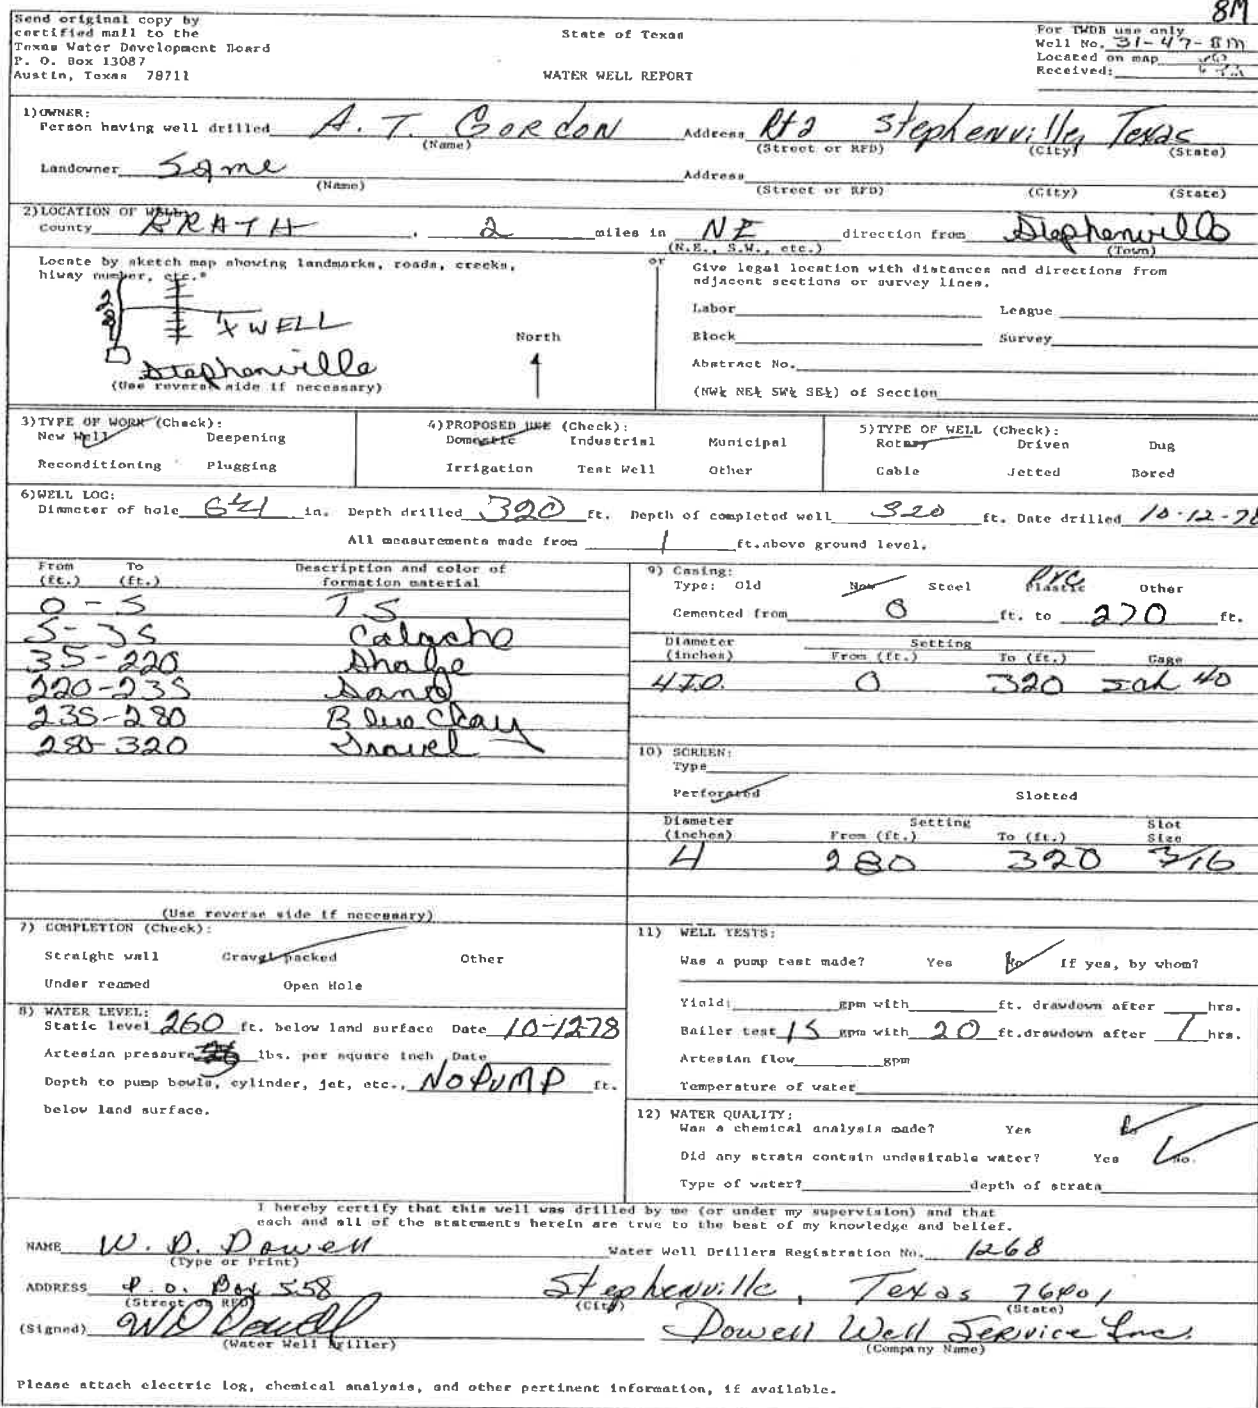 8M
Send original copy by
certified mail to the
Texas Water Development Board
P. O. Box 13087
Austin, Texas 78711
State of Texas
WATER WELL REPORT
For TWDB use only
Well No. 31-47-8M
Located on map
Received:
1) OWNER:
Person having well drilled A. T. GORDON Address Rt 2 Stephenville, Texas
(Name) (Street or RFD) (City) (State)
Landowner Same Address
(Name) (Street or RFD) (City) (State)
2) LOCATION OF WELL:
County ERATH , 2 miles in NE direction from Stephenville
(N.E., S.W., etc.) (Town)
Locate by sketch map showing landmarks, roads, creeks,
hiway number, etc.*
281
X WELL
Stephenville
(Use reverse side if necessary)
North
or
Give legal location with distances and directions from
adjacent sections or survey lines.
Labor League
Block Survey
Abstract No.
(NW¼ NE¼ SW¼ SE¼) of Section
3) TYPE OF WORK (Check):
New Well Deepening
Reconditioning Plugging
4) PROPOSED USE (Check):
Domestic Industrial Municipal
Irrigation Test Well Other
5) TYPE OF WELL (Check):
Rotary Driven Dug
Cable Jetted Bored
6) WELL LOG:
Diameter of hole in. Depth drilled 320 ft. Depth of completed well 320 ft. Date drilled 10-12-78
All measurements made from 1 ft. above ground level.
From (ft.) To (ft.) Description and color of formation material
0-5 T S
5-35 Calache
35-220 Shale
220-235 Sand
235-280 Blue Clay
280-320 Gravel
(Use reverse side if necessary)
9) Casing:
Type: Old New Steel PVC Plastic Other
Cemented from 0 ft. to 270 ft.
Diameter (inches) Setting From (ft.) To (ft.) Gage
4 I.D. 0 320 sch 40
10) SCREEN:
Type
Perforated Slotted
Diameter (inches) Setting From (ft.) To (ft.) Slot Size
4 280 320 3/16
7) COMPLETION (Check):
Straight wall Gravel packed Other
Under reamed Open Hole
8) WATER LEVEL:
Static level 260 ft. below land surface Date 10-12-78
Artesian pressure lbs. per square inch Date
Depth to pump bowls, cylinder, jet, etc., NO PUMP ft.
below land surface.
11) WELL TESTS:
Was a pump test made? Yes No If yes, by whom?
Yield: gpm with ft. drawdown after hrs.
Bailer test 15 gpm with 20 ft. drawdown after 1 hrs.
Artesian flow gpm
Temperature of water
12) WATER QUALITY:
Was a chemical analysis made? Yes No
Did any strata contain undesirable water? Yes No.
Type of water? depth of strata
I hereby certify that this well was drilled by me (or under my supervision) and that
each and all of the statements herein are true to the best of my knowledge and belief.
NAME W. D. Dowell Water Well Drillers Registration No. 1268
(Type or Print)
ADDRESS P. O. Box 558 Stephenville, Texas 76401
(Street or RFD) (City) (State)
(Signed) WD Dowell Dowell Well Service Inc.
(Water Well Driller) (Company Name)
Please attach electric log, chemical analysis, and other pertinent information, if available.